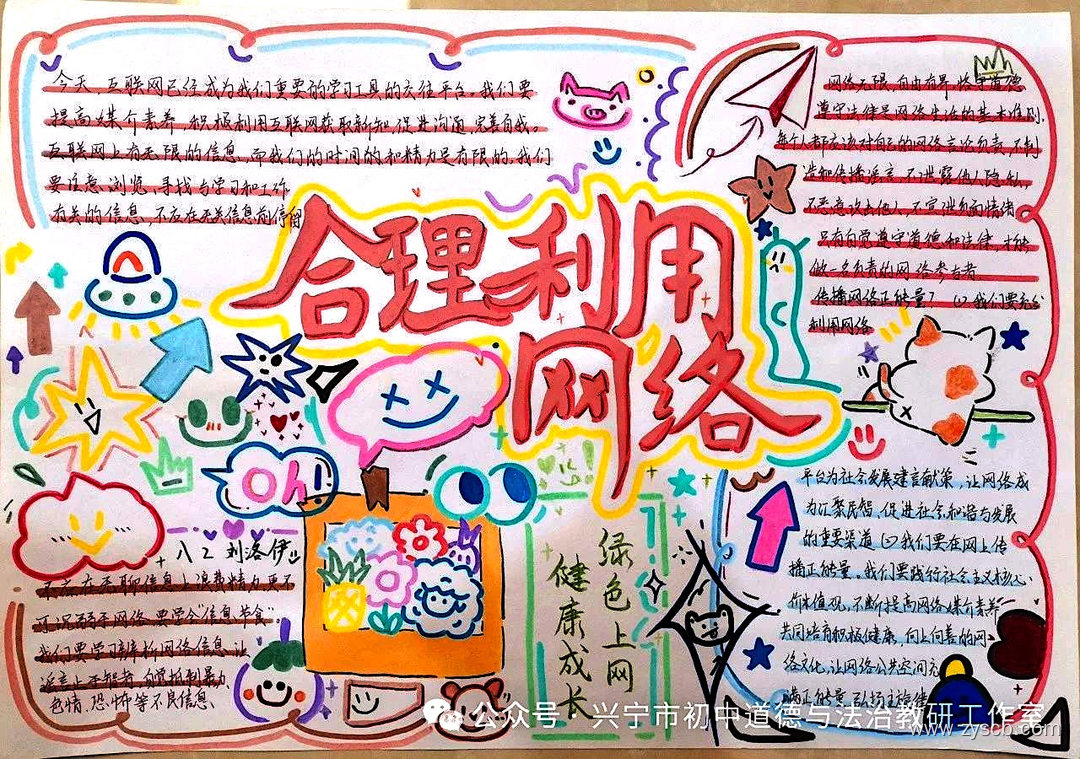 今天,互联网已经成为我们重要的学习工具的交往平台。我们要
提高媒介素养,积极利用互联网获取新知,促进沟通,完善自我。
互联网上有无限的信息,而我们的时间的和精力是有限的。我们
要注意、浏览、寻找与学习和工作
有关的信息,不应在无关信息前停留
合理利用
网络
网络无限,自由有界,恪守道德
遵守法律是网络生活的基本准则.
每个人都应该对自己的网络言论负责,不制
造和传播谣言,不泄露他人隐私,
不恶意攻击他人,不宣泄负面情绪
只有自觉遵守道德和法律,才能
做一名负责的网络参与者.
传播网络正能量? (1)我们要充分
利用网络
平台为社会发展建言献策,让网络成
为汇聚民智、促进社会和谐与发展
的重要渠道(2)我们要在网上传
播正能量。我们要践行社会主义核心
价值观,不断提高网络媒介素养
共同培育积极健康、向上向善的网
络文化,让网络公共空间充
满正能量
Oh!
八2 刘洛伊
不应在无聊信息上浪费精力更不
可沉溺于网络。要学会“信息节食”
我们要学习辨析网络信息,让
谣言止于智者,自觉抵制暴力、
色情、恐怖等不良信息、
绿色上网
健康成长
公众号·兴宁市初中道德与法治教研工作室
www.zyscb.com